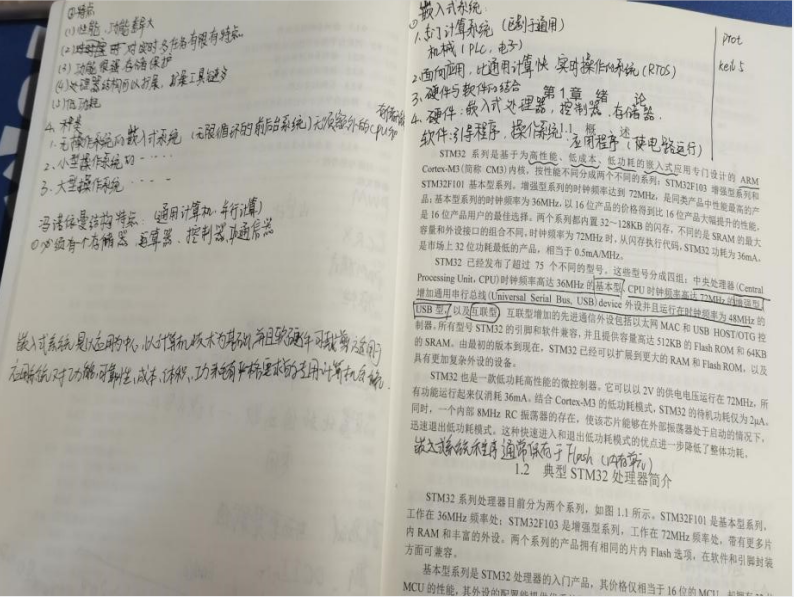 ③特点
(1)性能、功能差异大
(2) 对实时多任务有很有特点
(3) 功能很强存储保护
(4)处理器结构可以扩展,扩展工具链多
(5)低功耗
4、种类
1、无操作系统的嵌入式系统 (无限循环的前后台系统)
2、小型操作系统的····
3、大型操作系统····
冯诺依曼结构特点:(通用计算机、并行计算)
①必须有个存储器、运算器、控制器
嵌入式系统是以应用为中心,以计算机技术为基础,并且软硬件可裁剪,适用于
应用系统,对功能、可靠性、成本、体积、功耗有严格要求的专用计算机系统。
嵌入式系统:
1、专门计算系统 (区别于通用)
机械(PLC,电子)
2、面向应用,比通用计算快 实时操作的系统(RTOS)
3、硬件与软件的结合
第 1 章 绪 论
4、硬件:嵌入式处理器,控制器,存储器.
软件:引导程序,操作系统,应用程序(使电路运行)
prot
keil5
1.1 概 述
STM32 系列是基于为高性能、低成本、低功耗的嵌入式应用专门设计的 ARM
Cortex-M3(简称 CM3)内核,按性能不同分成两个不同的系列:STM32F103 增强型系列和
STM32F101 基本型系列。增强型系列的时钟频率达到 72MHz,是同类产品中性能最高的产
品;基本型系列的时钟频率为 36MHz,以 16 位产品的价格得到比 16 位产品大幅提升的性能,
是 16 位产品用户的最佳选择。两个系列都内置 32～128KB 的闪存,不同的是 SRAM 的最大
容量和外设接口的组合不同。时钟频率为 72MHz 时,从闪存执行代码,STM32 功耗为 36mA,
是市场上 32 位功耗最低的产品,相当于 0.5mA/MHz。
STM32 已经发布了超过 75 个不同的型号。这些型号分成四组:中央处理器(Central
Processing Unit, CPU)时钟频率高达 36MHz 的基本型、CPU 时钟频率高达 72MHz 的增强型、
增加通用串行总线(Universal Serial Bus, USB) device 外设并且运行在时钟频率为 48MHz 的
USB 型,以及互联型。互联型增加的先进通信外设包括以太网 MAC 和 USB HOST/OTG 控
制器。所有型号 STM32 的引脚和软件兼容,并且提供容量高达 512KB 的 Flash ROM 和 64KB
的 SRAM。由最初的版本到现在,STM32 已经可以扩展到更大的 RAM 和 Flash ROM,以及
具有更加复杂外设的设备。
STM32 也是一款低功耗高性能的微控制器。它可以以 2V 的供电电压运行在 72MHz,所
有功能运行起来仅消耗 36mA。结合 Cortex-M3 的低功耗模式,STM32 的待机功耗仅为 2μA。
同时,一个内部 8MHz RC 振荡器的存在,使该芯片能够在外部振荡器处于启动的情况下,
迅速退出低功耗模式。这种快速进入和退出低功耗模式的优点进一步降低了整体功耗。
嵌入式系统程序通常保存于 Flash (内存单元)
1.2 典型 STM32 处理器简介
STM32 系列处理器目前分为两个系列,如图 1.1 所示。STM32F101 是基本型系列,
工作在 36MHz 频率处;STM32F103 是增强型系列,工作在 72MHz 频率处,带有更多片
内 RAM 和丰富的外设。两个系列的产品拥有相同的片内 Flash 选项,在软件和引脚封装
方面可兼容。
基本型系列是 STM32 处理器的入门产品,其价格仅相当于 16 位的 MCU,